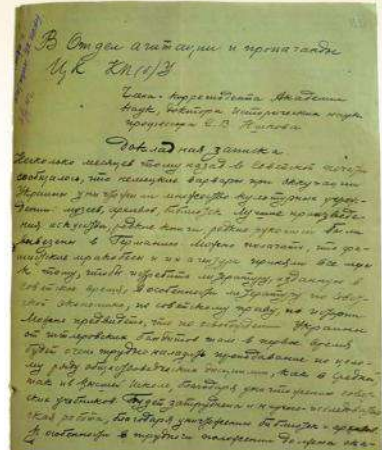 В Отдел агитации и пропаганды
ЦК КП(б)У
Члена-корреспондента Академии
Наук, доктора исторических наук,
профессора С. В.
Докладная записка
Несколько месяцев тому назад в советской печати
сообщалось, что немецкие варвары при оккупации
Украины уничтожили множество культурных учреж-
дений: музеев, архивов, библиотек. Лучшие произведе-
ния искусства, редкие книги, редкие рукописи были
вывезены в Германию. Можно полагать, что фа-
шистские мракобесы и приняли все меры
к тому, чтобы истребить литературу, изданную в
советское время, в особенности литературу по
экономике, по советскому праву, по истории
Можно предвидеть, что по Украины
от гитлеровских бандитов там в первое время
будет очень трудно наладить преподавание по цело-
му ряду дисциплин, как в средней,
так и высшей школе, благодаря уничтожению совет-
ских учебников. Будет затруднена и научно-исследователь-
ская работа, благодаря уничтожению библиотек и архивов
В особенности в трудном положении должна ока-